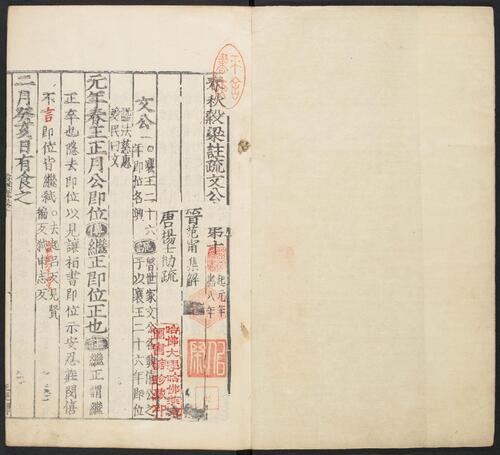 春秋穀梁註疏文公
第十
起元年
盡八年
晉范甯集解
唐楊士勛疏
文公
○襄王二十六
年即位名興
疏
魯世家文公名興僖公之
子以襄王二十六年即位
諡法慈惠
愛民曰文
元年春王正月公即位傳繼正即位正也注繼正謂繼
正卒也隱去即位以見讓桓書即位示安忍莊閔僖
不言即位皆繼弒○去起呂反見賢
遍反弒申志反
二月癸亥日有食之
哈佛大學哈佛燕京
圖書館珍藏印